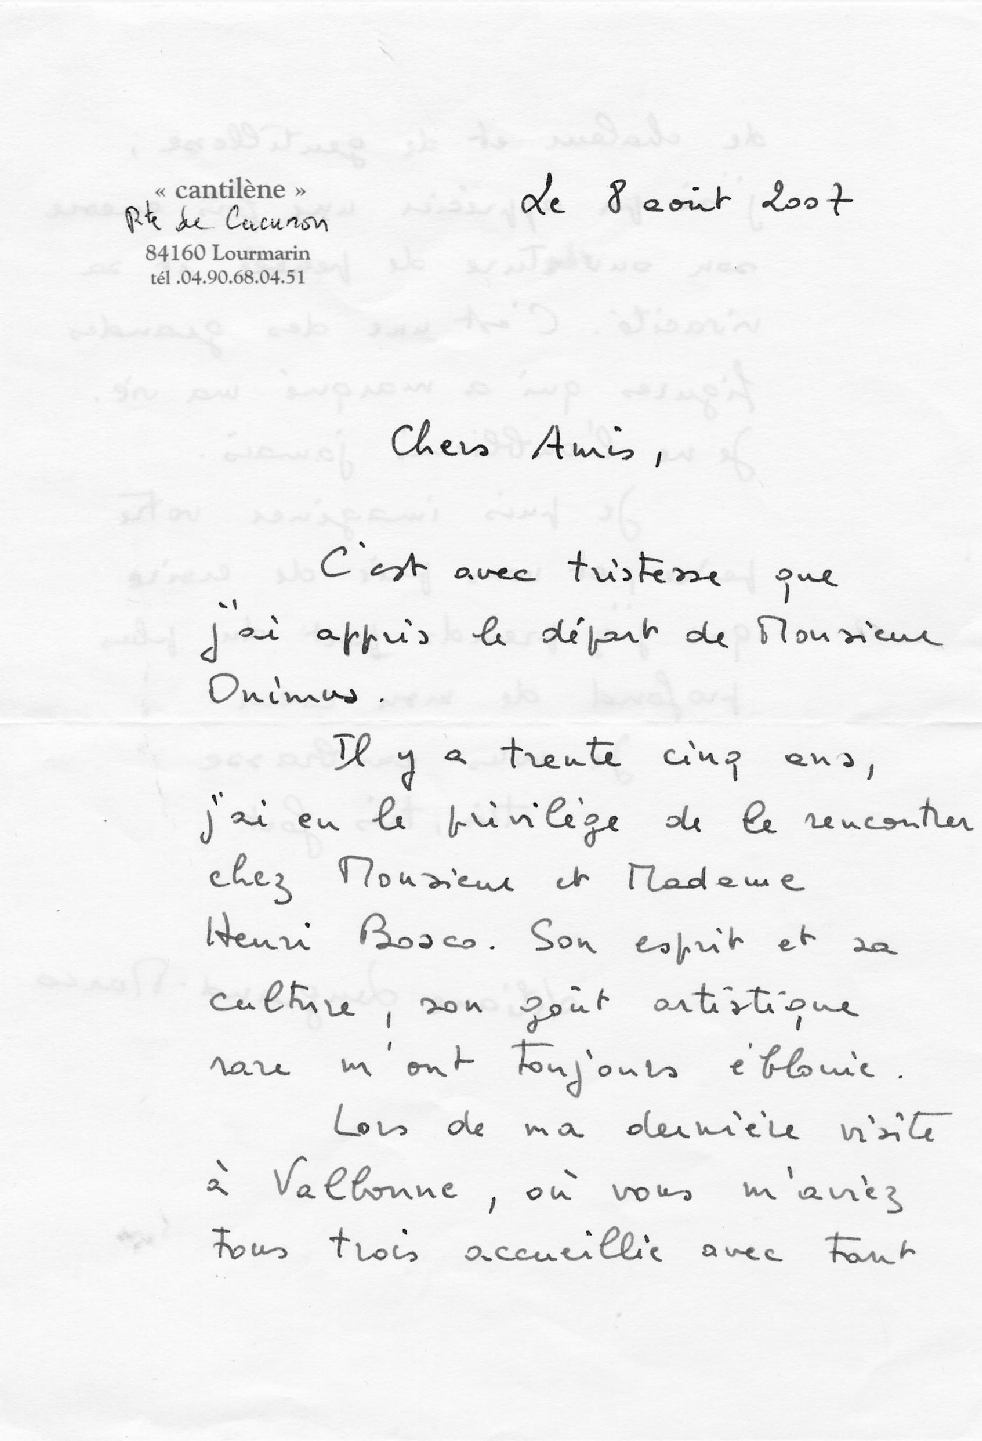 « cantilène »
Rte de Cucuron
84160 Lourmarin
tél .04.90.68.04.51
Le 8 août 2007
Chers Amis,
C'est avec tristesse que
j'ai appris le départ de Monsieur
Onimus.
Il y a trente cinq ans,
j'ai eu le privilège de le rencontrer
chez Monsieur et Madame
Henri Bosco. Son esprit et sa
culture, son goût artistique
rare m'ont toujours éblouie.
Lors de ma dernière visite
à Valbonne, où vous m'aviez
tous trois accueillie avec tant